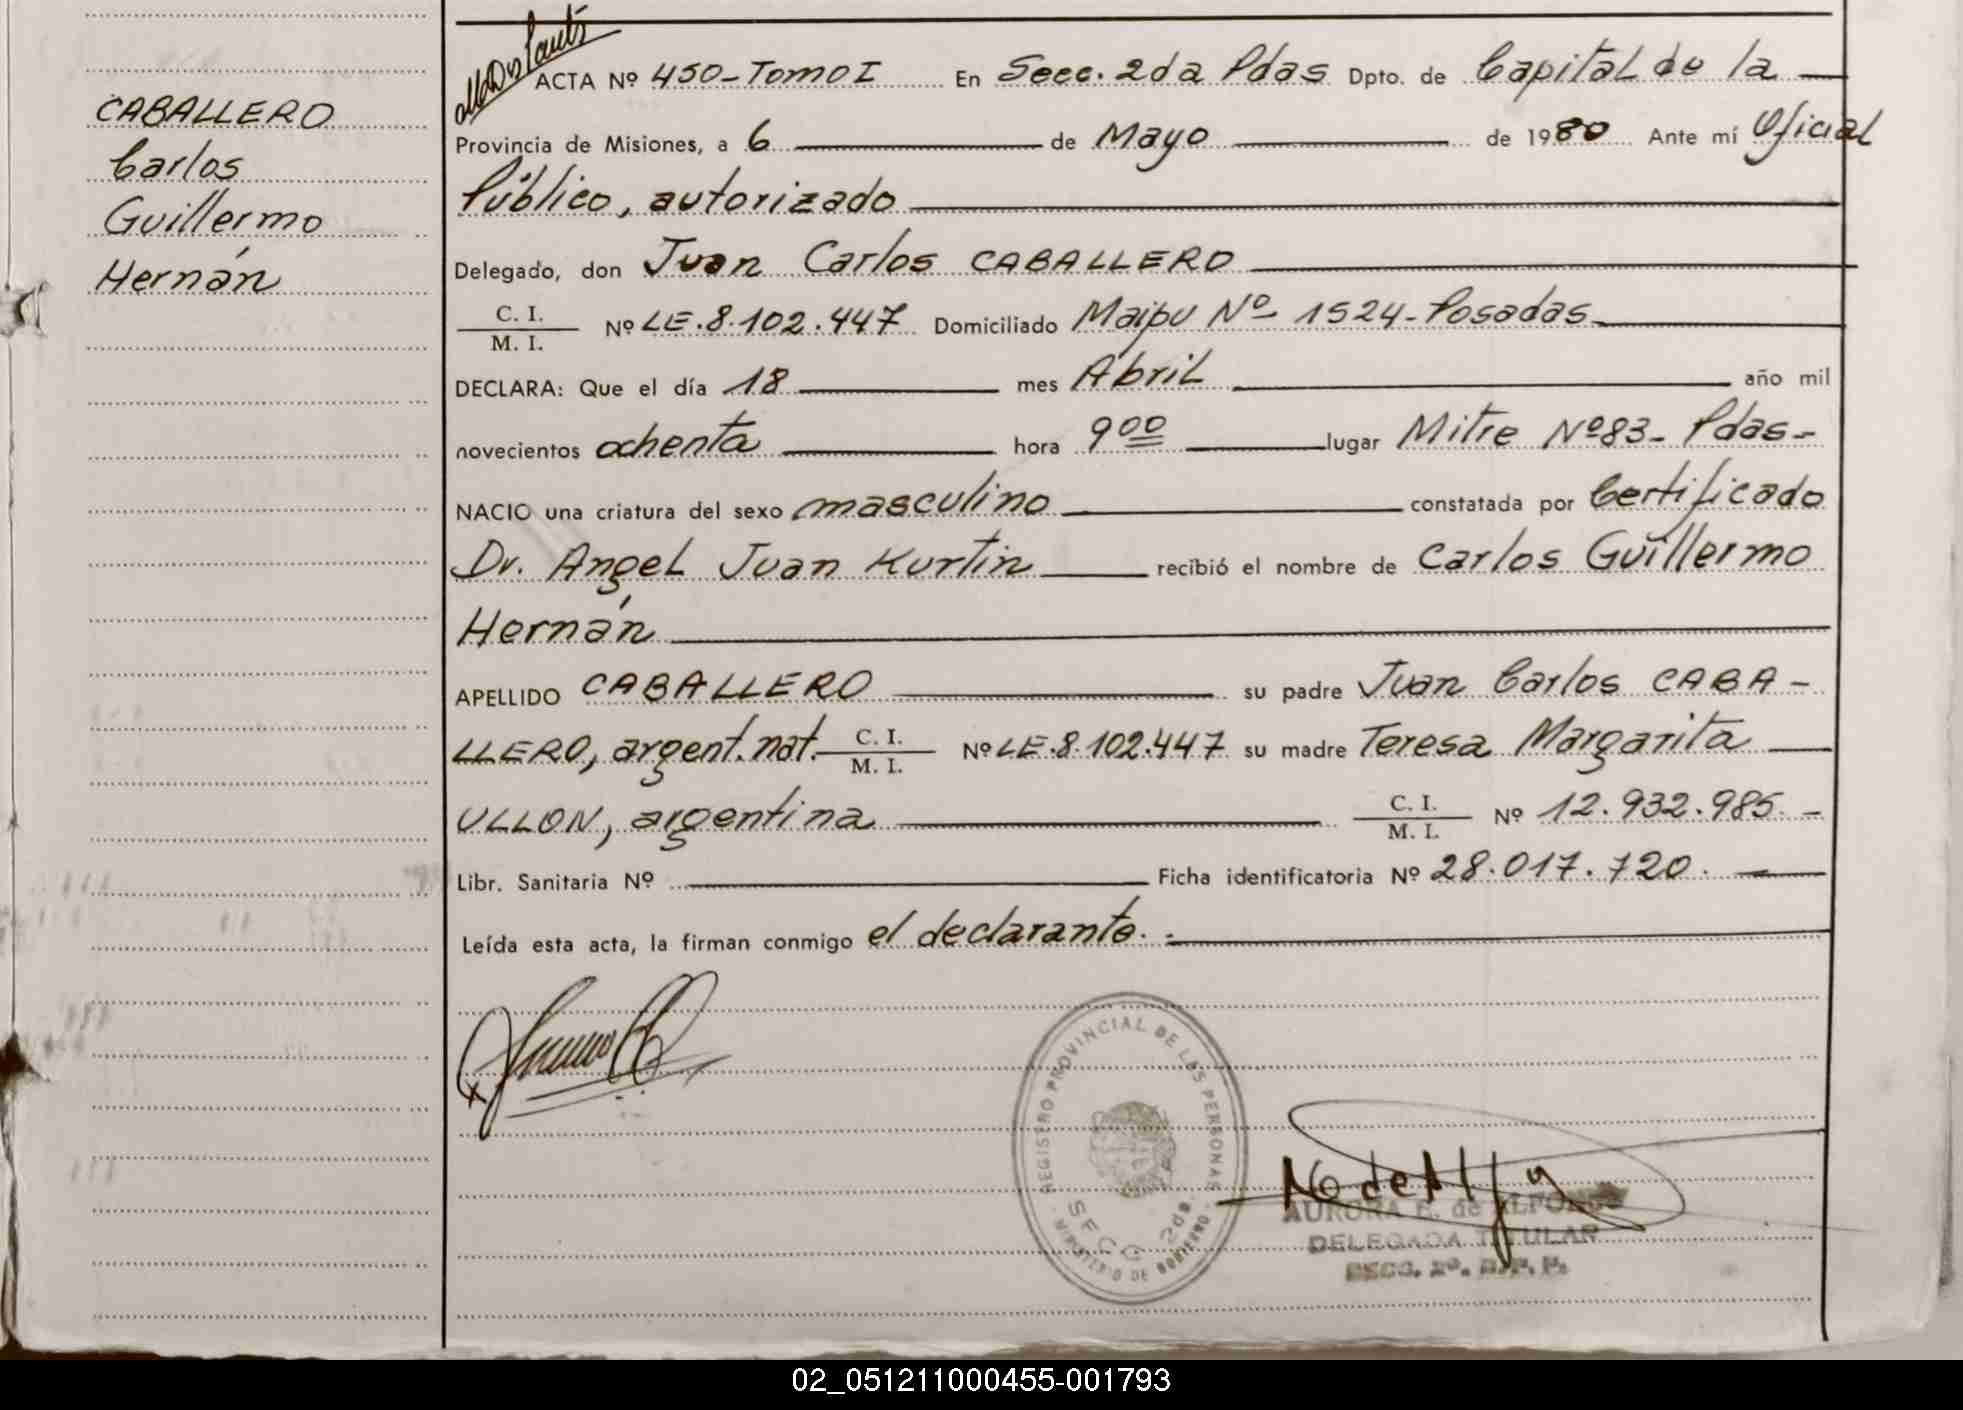 CABALLERO
Carlos
Guillermo
Hernán
ACTA Nº 450-Tomo I En Secc. 2da Pdas Dpto. de Capital de la
Provincia de Misiones, a 6 de Mayo de 1980 Ante mí Oficial
Público, autorizado
Delegado, don Juan Carlos CABALLERO
C. I.
M. I. Nº LE.8.102.447 Domiciliado Maipu Nº 1524-Posadas
DECLARA: Que el día 18 mes Abril año mil
novecientos ochenta hora 9 00 lugar Mitre Nº83- Pdas-
NACIO una criatura del sexo masculino constatada por Certificado
Dr. Angel Juan Kurtin recibió el nombre de Carlos Guillermo
Hernán
APELLIDO CABALLERO su padre Juan Carlos CABA-
LLERO, argent. nat. C. I. M. I. Nº LE.8.102.447 su madre Teresa Margarita
ULLON, argentina C. I. M. I. Nº 12.932.985.-
Libr. Sanitaria Nº Ficha identificatoria Nº 28.017.720.
Leída esta acta, la firman conmigo el declarante.
REGISTRO PROVINCIAL DE LAS PERSONAS
MINISTERIO DE GOBIERNO
SECC. 2da.
AURORA E. de ALFONSO
DELEGADA TITULAR
SECC. 2ª.
02_051211000455-001793